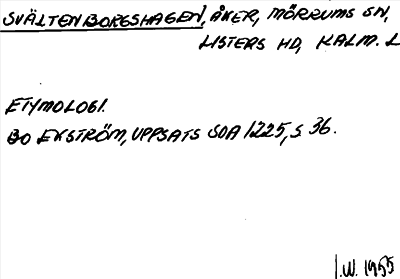 SVÄLTENBORGSHAGEN, ÅKER, MÖRRUMS SN,
LISTERS HD, KALM. L
ETYMOLOGI.
BO EKSTRÖM, UPPSATS SOA 1225, S 36.
I.W. 1955